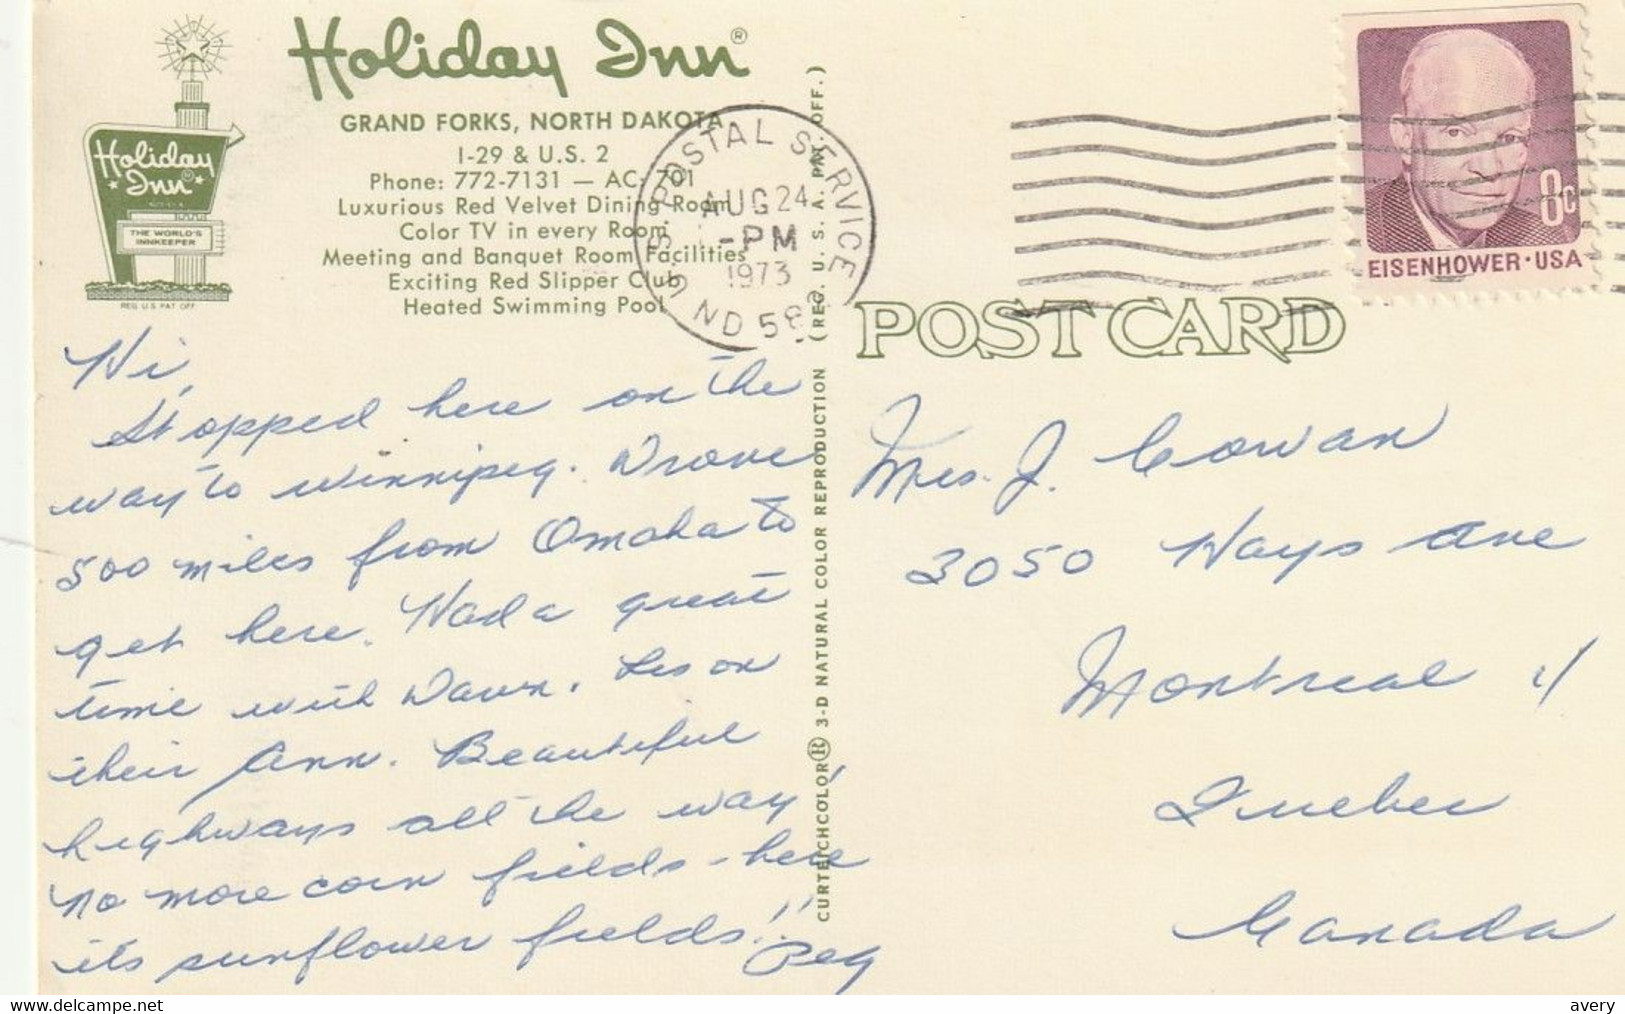 Holiday Inn®
GRAND FORKS, NORTH DAKOTA
I-29 & U.S. 2
Phone: 772-7131 — AC: 701
Luxurious Red Velvet Dining Room
Color TV in every Room
Meeting and Banquet Room Facilities
Exciting Red Slipper Club
Heated Swimming Pool
Holiday
Inn
THE WORLD'S
INNKEEPER
REG U.S. PAT. OFF.
U.S. POSTAL SERVICE
AUG 24
-PM
1973
ND 58
EISENHOWER · USA
8c
POST CARD
CURTEICHCOLOR® 3-D NATURAL COLOR REPRODUCTION (REG. U. S. A. PAT. OFF.)
Hi,
Stopped here on the
way to Winnipeg. Drove
500 miles from Omaha to
get here. Had a great
time with Dawn. Les on
their Ann. Beautiful
highways all the way!
No more corn fields - here
its sunflower fields!!
Peg
Mrs. J. Cowan
3050 Hays Ave
Montreal
Quebec
Canada
avery